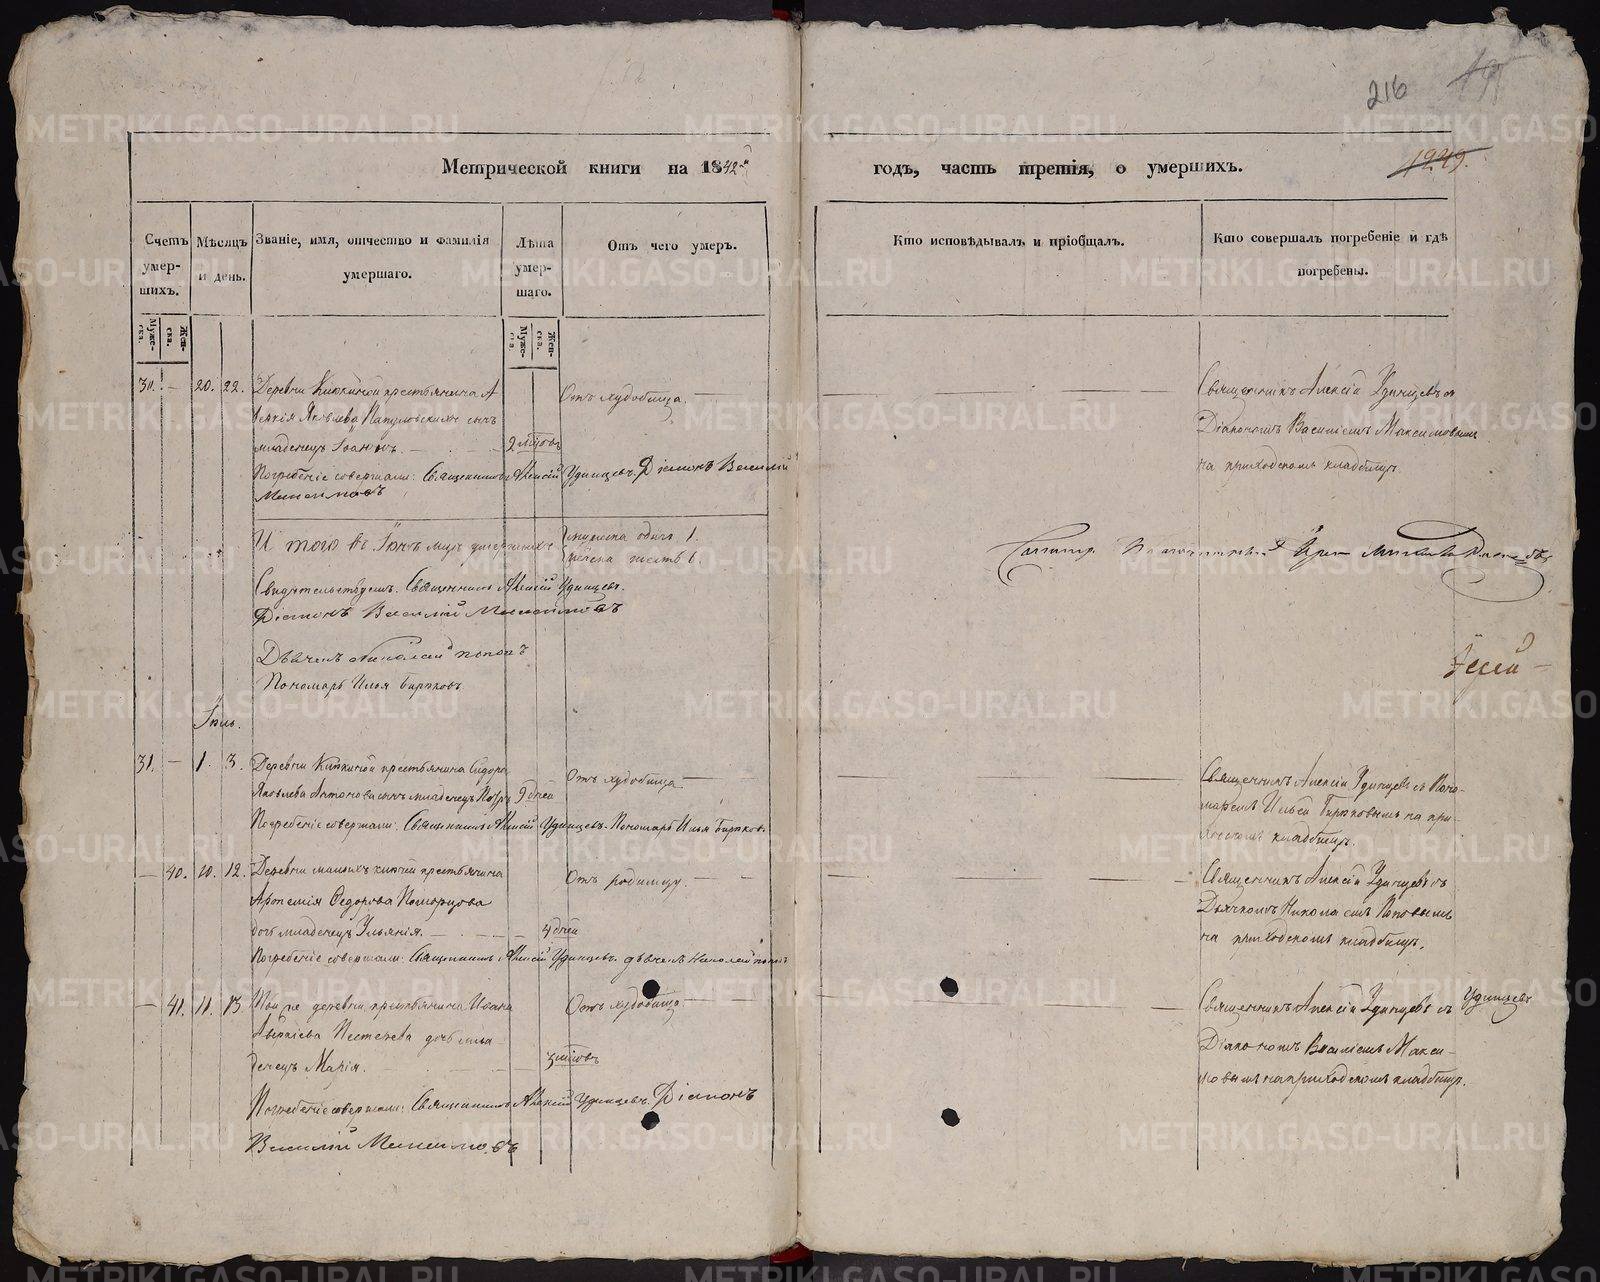 216
1249.
Метрической книги на 1842й
годъ, часть третія, о умершихъ.
Счетъ умер-шихъ.
Мѣсяцъ и день.
Званіе, имя, отчество и фамилія умершаго.
Лѣта умер-шаго.
Отъ чего умеръ.
Кто исповѣдывалъ и пріобщалъ.
Кто совершалъ погребеніе и гдѣ погребены.
Муже-ска.
Жен-ска.
Муже-ска.
Жен-ска.
30. — 20. 22. Деревни крестьянина А
Яковлева сынъ
младенецъ Іоаннъ.
Отъ худобища.
Священникъ Алексій Удинцевъ съ
Діакономъ Василіемъ Максимовымъ
на приходскомъ кладбищѣ.
Погребеніе совершали: Священникъ Алексій Удинцевъ. Діаконъ Василій
Максимовъ
И того въ Іюнѣ мцѣ умершихъ мужеска одинъ 1.
женска шесть 6.
Свидѣтельствуемъ. Священникъ Алексій Удинцевъ.
Діаконъ Василій Максимовъ
Дьячекъ Николай Поповъ
Пономарь Илья Бирюковъ
Іюль.
31. — 1. 3. Деревни крестьянина Сидора
Яковлева Антонова сынъ младенецъ Петръ 9 дней
Отъ худобища
Священникъ Алексій Удинцевъ съ Поно-
маремъ Ильей Бирюковымъ на при-
ходскомъ кладбищѣ.
Погребеніе совершали: Священникъ Алексій Удинцевъ. Пономарь Илья Бирюковъ
— 40. 10. 12. Деревни крестьянина
Федорова
дочь младенецъ Ульянія.
4 дней
Отъ родимцу.
Священникъ Алексій Удинцевъ съ
Дьячкомъ Николаемъ Поповымъ
на приходскомъ кладбищѣ.
Погребеніе совершали: Священникъ Алексій Удинцевъ. дьячекъ Николай Поповъ
— 41. 11. 13. Той же деревни крестьянина Ивана
дочь мла-
денецъ Марія.
Отъ худобища
Священникъ Алексій Удинцевъ съ
Удинцевъ
Діакономъ Василіемъ Макси-
мовымъ на приходскомъ кладбищѣ.
Погребеніе совершали: Священникъ Алексій Удинцевъ. Діаконъ
Василій Максимовъ
METRIKI.GASO-URAL.RU